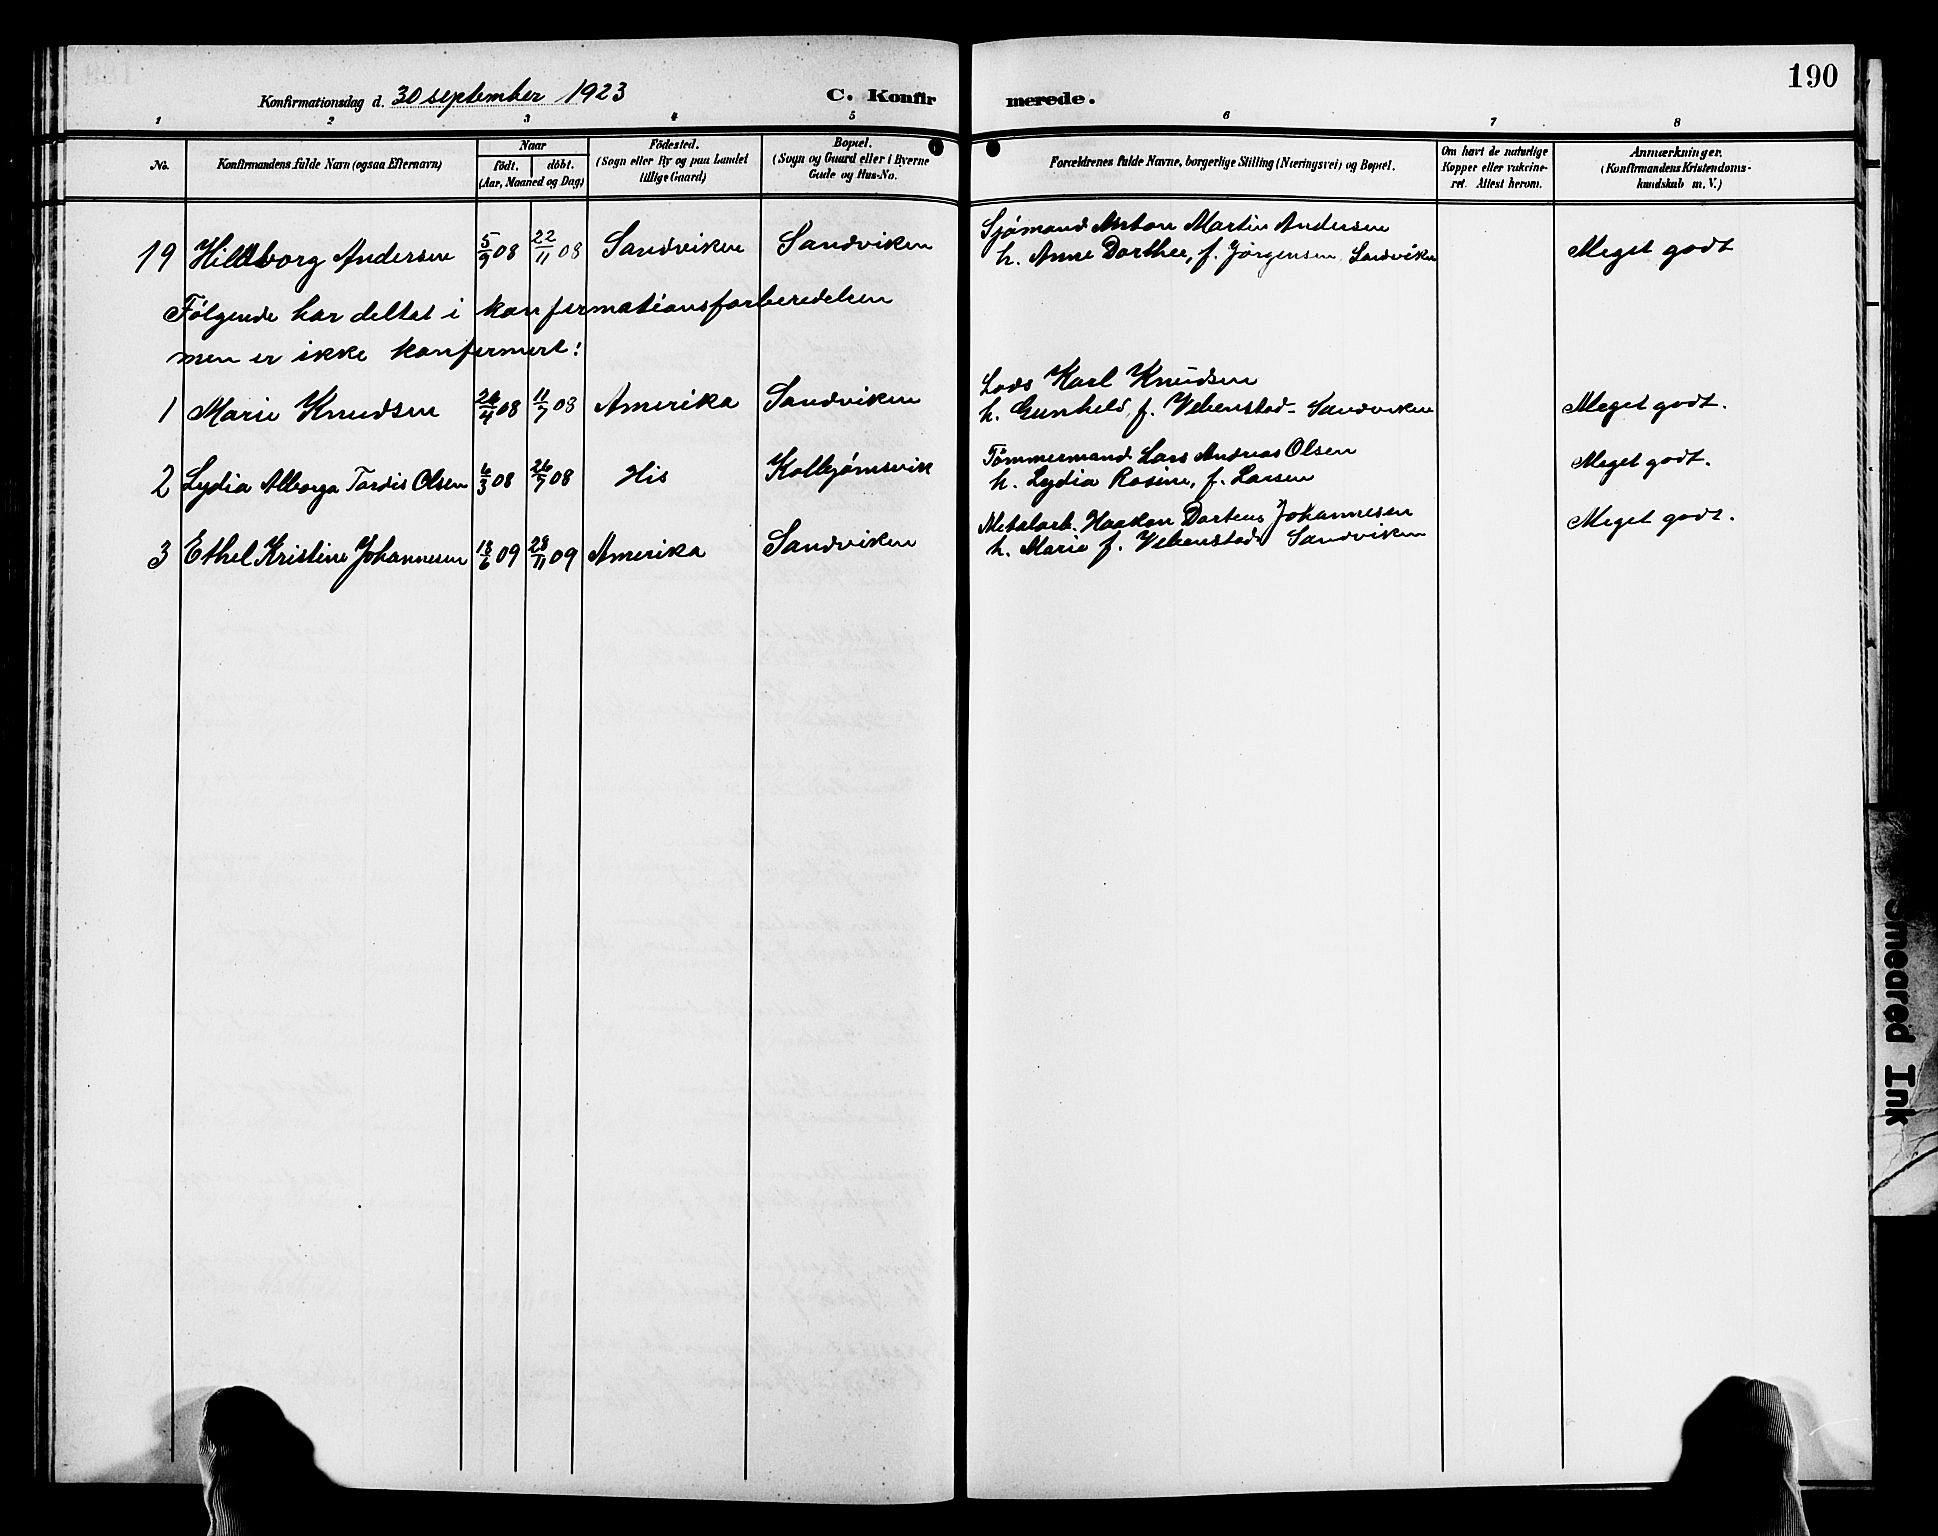 190
Konfirmationsdag d. 30 september 1923 C. Konfirmerede.
1 2 3 4 5 6 7 8
No.
Konfirmandens fulde Navn (ogsaa Efternavn)
Naar
födt. döbt.
(Aar, Maaned og Dag)
Födested.
(Sogn eller By og paa Landet
tillige Gaard)
Bopæl.
(Sogn og Gaard eller i Byerne
Gade og Hus-No.
Forældrenes fulde Navne, borgerlige Stilling (Næringsvei) og Bopæl.
Om havt de naturlige
Kopper eller vakcine-
ret. Attest herom.
Anmærkninger.
(Konfirmandens Kristendoms-
kundskab m. V.)
19 Hildborg Andersen 5/9 08 22/11 08 Sandviken Sandviken Sjømand Anton Martin Andersen
h. Anne Dorthea, f. Jørgensen, Sandviken Meget godt
Følgende har deltat i konfermationsforberedelsen
men er ikke konfermert:
1 Marie Knudsen 26/4 08 11/7 08 Amerika Sandviken Lods Karl Knudsen
h. Gunhild, f. Vebenstad - Sandviken Meget godt.
2 Lydia Alborga Tordis Olsen 6/3 08 26/7 08 His Kolbjørnsvik Tømmermand Lars Andreas Olsen
h. Lydia Rosine, f. Larsen Meget godt.
3 Ethel Kristine Johannesen 18/6 09 28/11 09 Amerika Sandviken Metalarb. Haakon Johannesen
h. Marie f. Vebenstad Sandviken Meget godt.
Smeared Ink